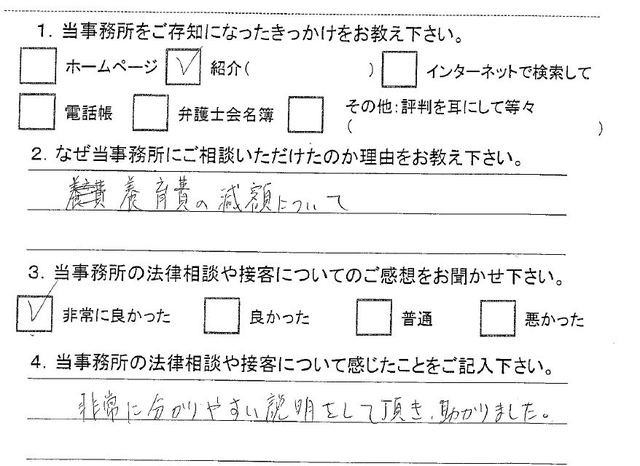 1. 当事務所をご存知になったきっかけをお教え下さい。
ホームページ 紹介( ) インターネットで検索して
電話帳 弁護士会名簿 その他:評判を耳にして等々
( )
2. なぜ当事務所にご相談いただけたのか理由をお教え下さい。
養育費の減額について
3. 当事務所の法律相談や接客についてのご感想をお聞かせ下さい。
非常に良かった 良かった 普通 悪かった
4. 当事務所の法律相談や接客について感じたことをご記入下さい。
非常に分かりやすい説明をして頂き、助かりました。